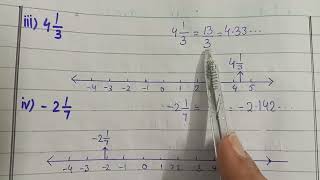 iii) 4 1/3    4 1/3 = 13/3 = 4.33...
4 1/3
-4 -3 -2 -1 0 1 2 3 4 5
iv) -2 1/7    -2 1/7 = = -2.142...
-2 1/7
-4 -3 -2 -1 0 1 2 3 4